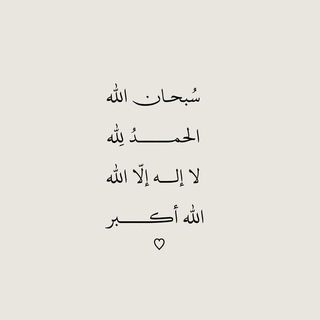 سُبحـان الله
الحمـــــدُ لِلّٰه
لا إلـــه إلّا الله
الله أكـــــبر
♡